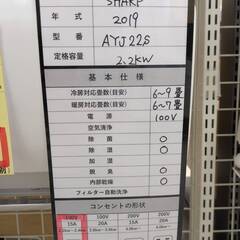 SHARP
年式 2019
型番 AYJ22S
定格容量 2.2kW
基本仕様
冷房対応畳数(目安) 6~9畳
暖房対応畳数(目安) 6~7畳
電源 100V
空気清浄
除菌 ○
除湿 ○
加湿
脱臭 ○
内部乾燥 ○
フィルター自動洗浄
コンセントの形状
100V 100V 200V 200V
15A 20A 15A 20A